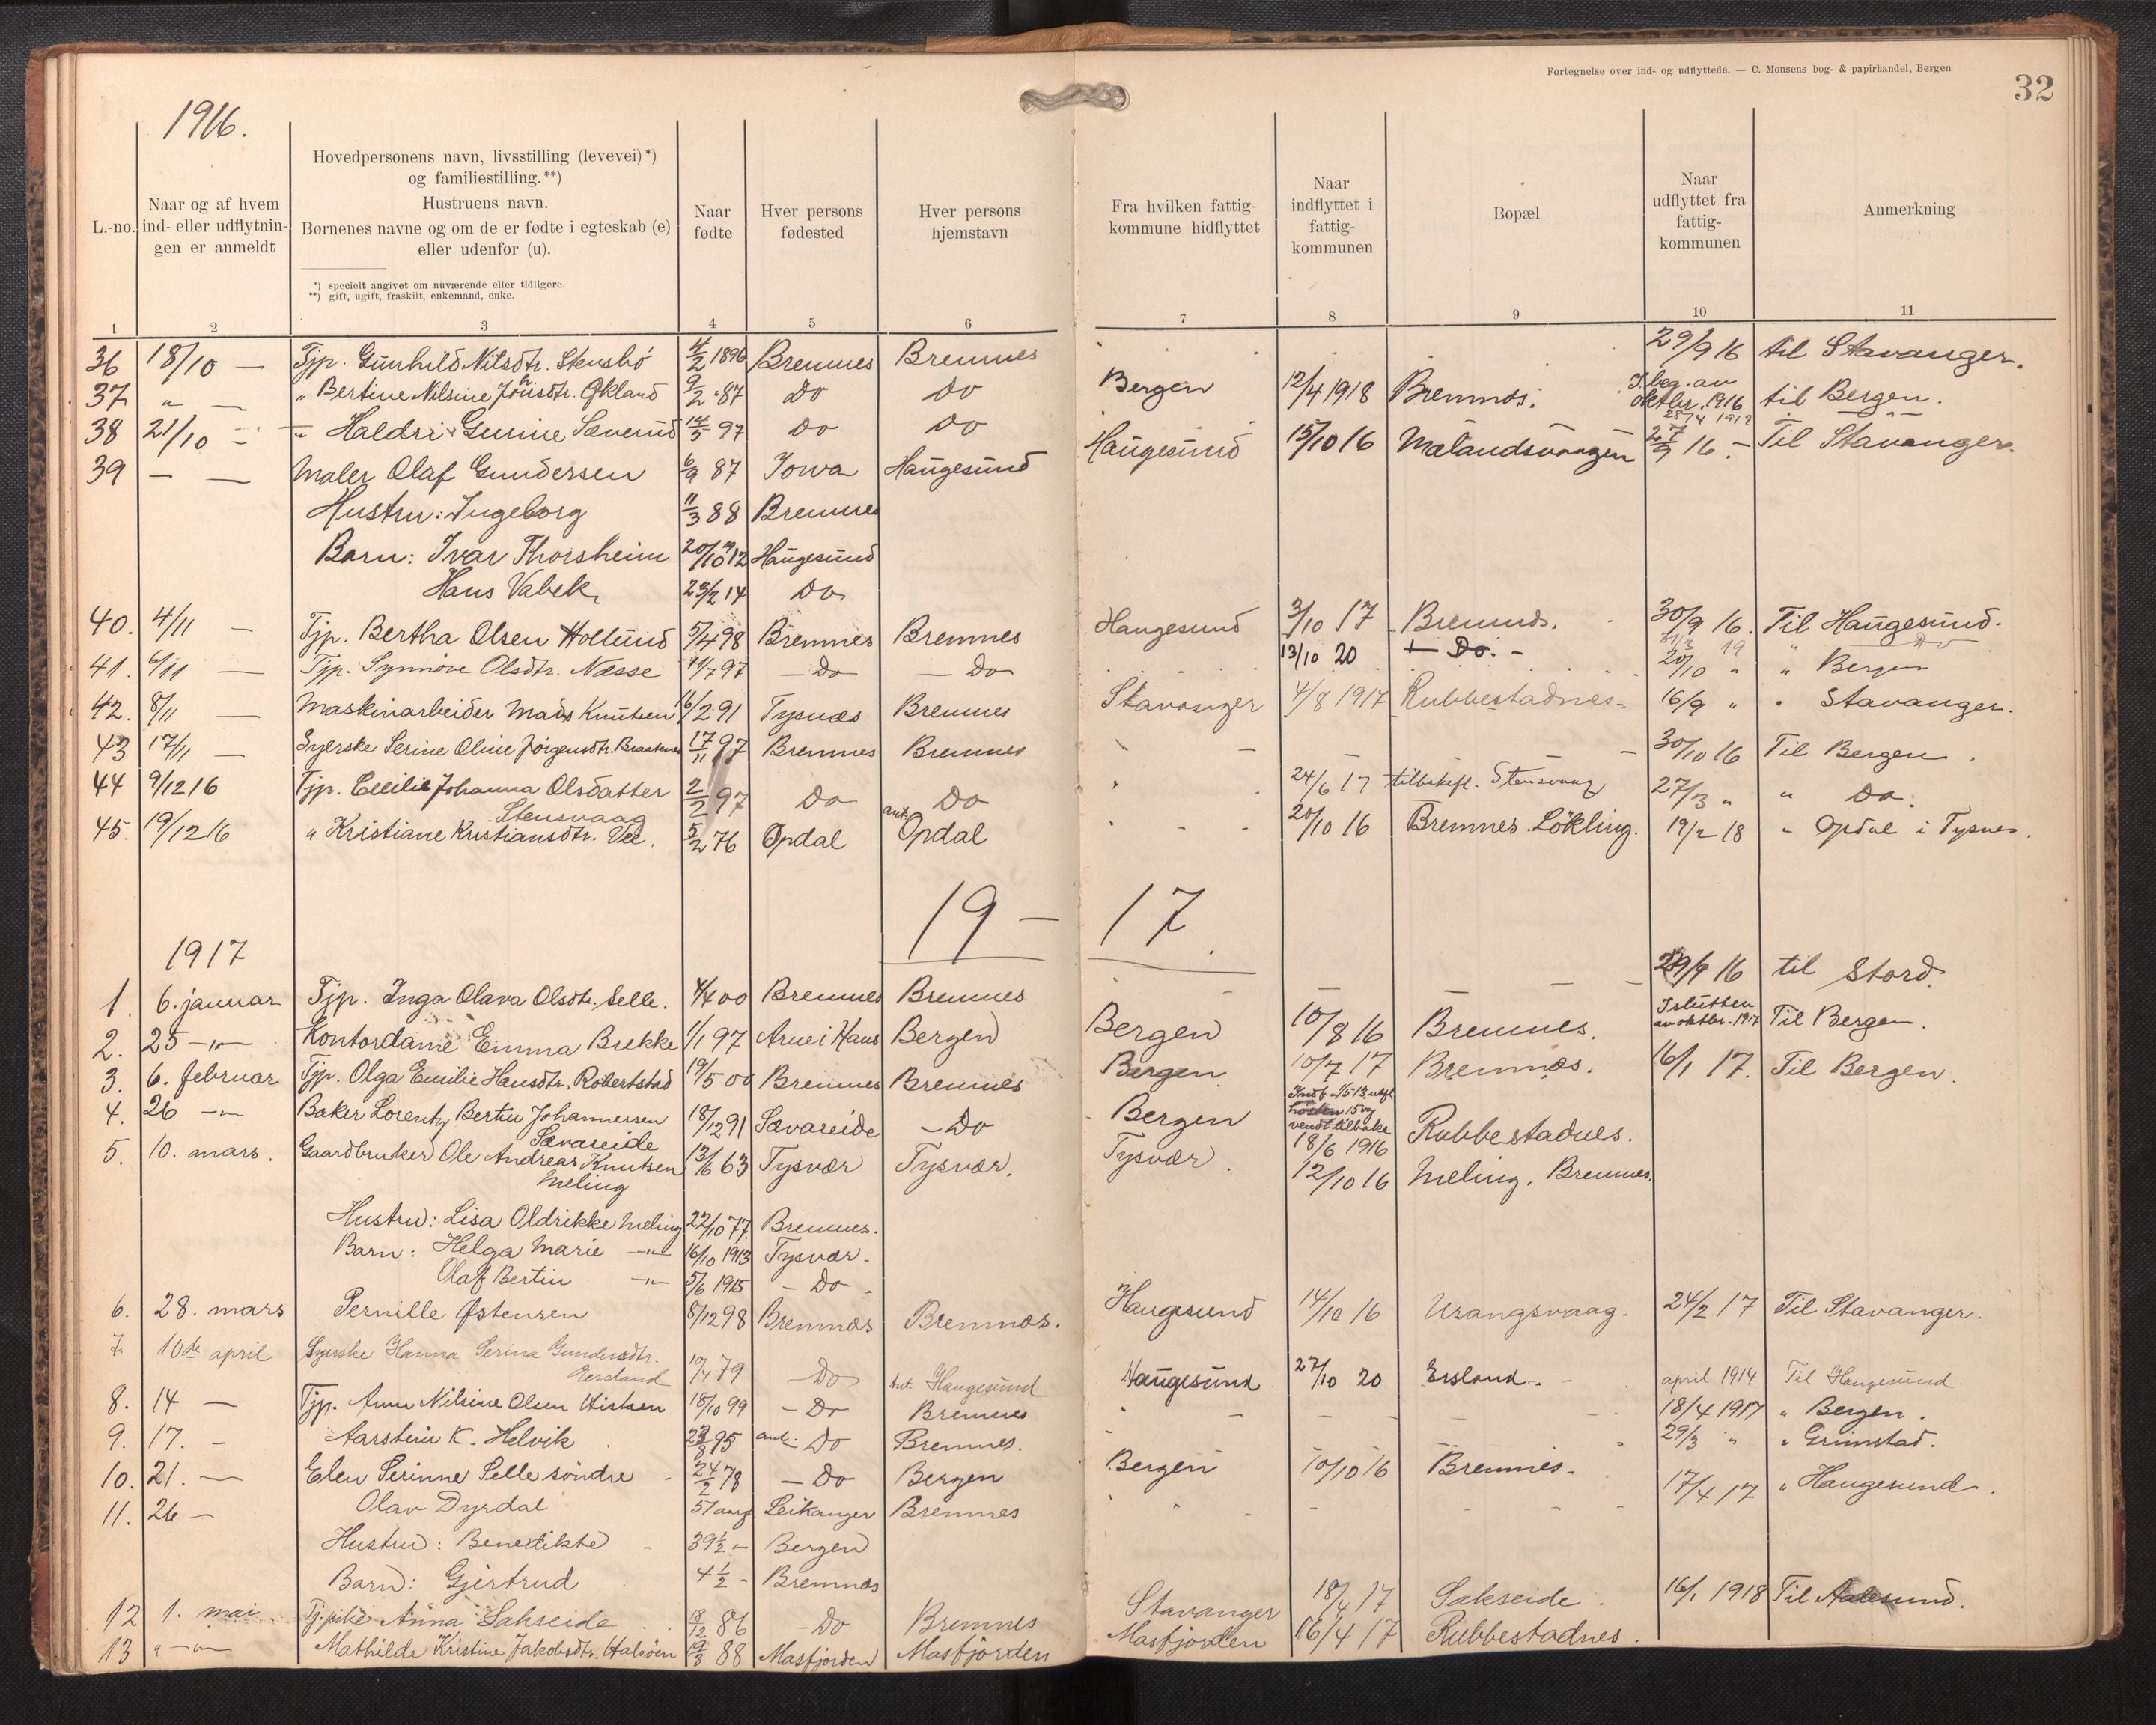 Fortegnelse over ind- og udflyttede. — C. Monsens bog- & papirhandel, Bergen
32
1916.
L.-no.
Naar og af hvem ind- eller udflytningen er anmeldt
Hovedpersonens navn, livsstilling (levevei)*) og familiestilling.**)
Hustruens navn.
Børnenes navne og om de er fødte i egteskab (e) eller udenfor (u).
*) specielt angivet om nuværende eller tidligere.
**) gift, ugift, fraskilt, enkemand, enke.
Naar fødte
Hver persons fødested
Hver persons hjemstavn
Fra hvilken fattigkommune hidflyttet
Naar indflyttet i fattigkommunen
Bopæl
Naar udflyttet fra fattigkommunen
Anmerkning
1 2 3 4 5 6 7 8 9 10 11
36 18/10 — Tjp. Gunhild Nilsdtr. Stensbö 4/2 1896 Bremnes Bremnes 29/9 16 til Stavanger.
37 " — " Bertine Nilsine Jönsdtr. Økland 9/2 87 Do Do Bergen 12/4 1918 Bremnes. I beg. av oktbr. 1916 til Bergen.
38 21/10 — " Haldri Gurine Sæverud 14/5 97 Do Do 27/9 16 — Til Stavanger.
39 — — Maler Olaf Gundersen 6/9 87 Iowa Haugesund Haugesund 15/10 16 Mælandsvaagen
Hustru: Ingeborg 11/3 88 Bremnes
Barn: Ivar Thorsheim 20/10 12 Haugesund
Hans Vabek 23/2 14 Do
40. 4/11 — Tjp. Bertha Olsen Hollund 5/4 98 Bremnes Bremnes Haugesund 3/10 17 Bremnes. 30/9 16. Til Haugesund.
13/10 20 — Do. — Do
41. 6/11 — Tjp. Synnöve Olsdtr. Næsse 11/7 97 — Do — Do 20/10 " " Bergen
42. 8/11 — Maskinarbeider Mads Knutsen 16/2 91 Tysnæs Bremnes Stavanger 4/8 1917 Rubbestadnes — 16/9 " " Stavanger.
43 17/11 — Syerske Serine Oline Jørgensdtr. Braatenes 17/11 97 Bremnes Bremnes 30/10 16 Til Bergen.
44 9/12 16 Tjp. Cecilie Johanna Olsdatter Stensvaag 2/2 97 Do Do 24/6 17 tilbakefl. Stensvaag 27/3 " " Do.
45. 19/12 16 " Kristiane Kristiansdtr. Vee. 5/2 76 Opdal ant. Opdal 20/10 16 Bremnes. Lökling. 19/2 18 " Opdal i Tysnes.
19 — 17.
1917
1. 6. januar Tjp. Inga Olava Olsdtr. Selle. 4/4 00 Bremnes Bremnes 29/9 16 til Stord.
2. 25 —"— Kontordame Emma Brekke 1/1 97 Arne i Haus Bergen Bergen 10/8 16 Bremnes. I slutten av oktbr. 1917 Til Bergen.
3. 6. februar Tjp. Olga Emilie Hansdtr. Robertstad 19/5 00 Bremnes Bremnes Bergen 10/7 17 Bremnæs. 16/1 17. Til Bergen.
4. 26 —"— Baker Lorentz Bertin Johannessen Sævareide 18/12 91 Sævareide — Do Bergen Indf. 1/5 13, utfl. hösten 15 og vendt tilbake 18/6 1916 Rubbestadnes.
5. 10. mars. Gaardbruker Ole Andreas Knutsen Meling 13/6 63 Tysvær Tysvær. Tysvær. 12/10 16 Meling. Bremnes.
Hustru: Lisa Oldrikke Meling 22/10 77. Bremnes.
Barn: Helga Marie —"— 16/10 1913 Tysvær.
Olaf Bertin —"— 5/6 1915 — Do.
6. 28. mars Pernille Østensen 8/12 98 Bremnæs Bremnæs. Haugesund 14/10 16 Urangsvaag. 24/2 17 Til Stavanger.
7. 10de april Syerske Hanna Serina Gundersdtr. Aersland 10/4 79 — Do Ant. Haugesund Haugesund 27/10 20 Ersland. — april 1914 Til Haugesund.
8. 14 — Tjp. Anna Nilsine Olsen 18/10 99 — Do Bremnes 18/4 1917 " Bergen.
9. 17. — Aarstein K. Helvik 95 ant. Do Bremnes. 29/3 " " Grimstad.
10. 21. — Elen Serinne Selle söndre 24/2 78 — Do Bergen Bergen 10/10 16 Bremnes. 17/4 17 " Haugesund.
11. 26 — Olav Dyrdal 51 aar Leikanger Bremnes
Hustru: Benedikte 39½ — Bergen
Barn: Gjertrud 4½ — Bremnæs
12 1. mai Tj.pike Anna Sakseide 18/12 86 Do Bremnes Stavanger 18/4 17 Sakseide. 16/1 1918 Til Aalesund.
13 " —"— Mathilde Kristine Jakobsdtr. Halsöen 19/3 88 Masfjorden Masfjorden Masfjorden 16/4 17 Rubbestadnes.